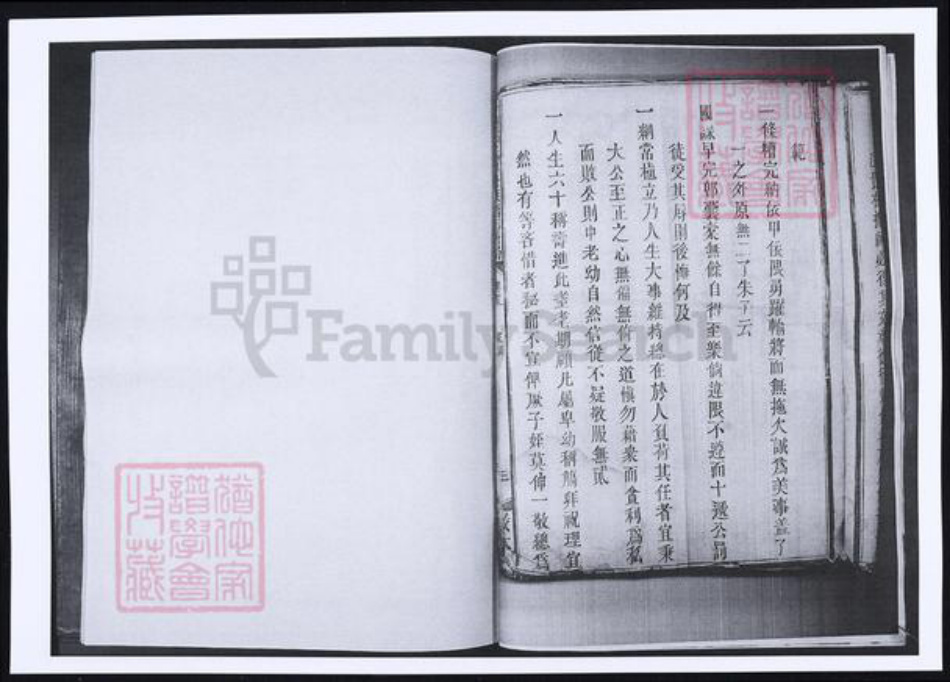 範
一條糧完納依甲依限勇躍輸將而無拖欠誠為美事蓋了
一之外原無二了朱子云
國課早完即囊橐無餘自得至樂倘違限不遵而十遞公罰
徒受其辱困後悔何及
一綱常植立乃人生大事維持總在於人負荷其任者宜秉
大公至正之心無偏無倚之道慎勿藉衆而貪利為私
而敗公則中老幼自然信從不疑敬服無貳
一人生六十稱壽進此耋老期頤凡屬卑幼稱觴拜祝理宜
然也有等吝惜者秘而不宣俾厥子姪莫伸一敬總為
三
猶他家
譜學會
收藏
猶他家
譜學會
收藏
FamilySearch